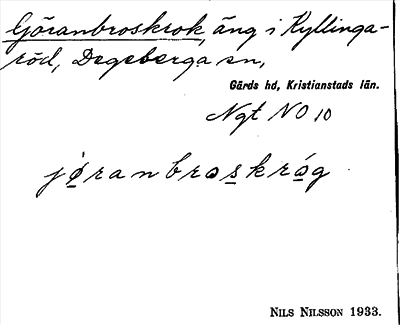 Göranbroskrok, äng i Kyllinga-
röd, Degeberga sn,
Gärds hd, Kristianstads län.
Ngt NO 10
jø̀ranbroskråg
Nils Nilsson 1933.